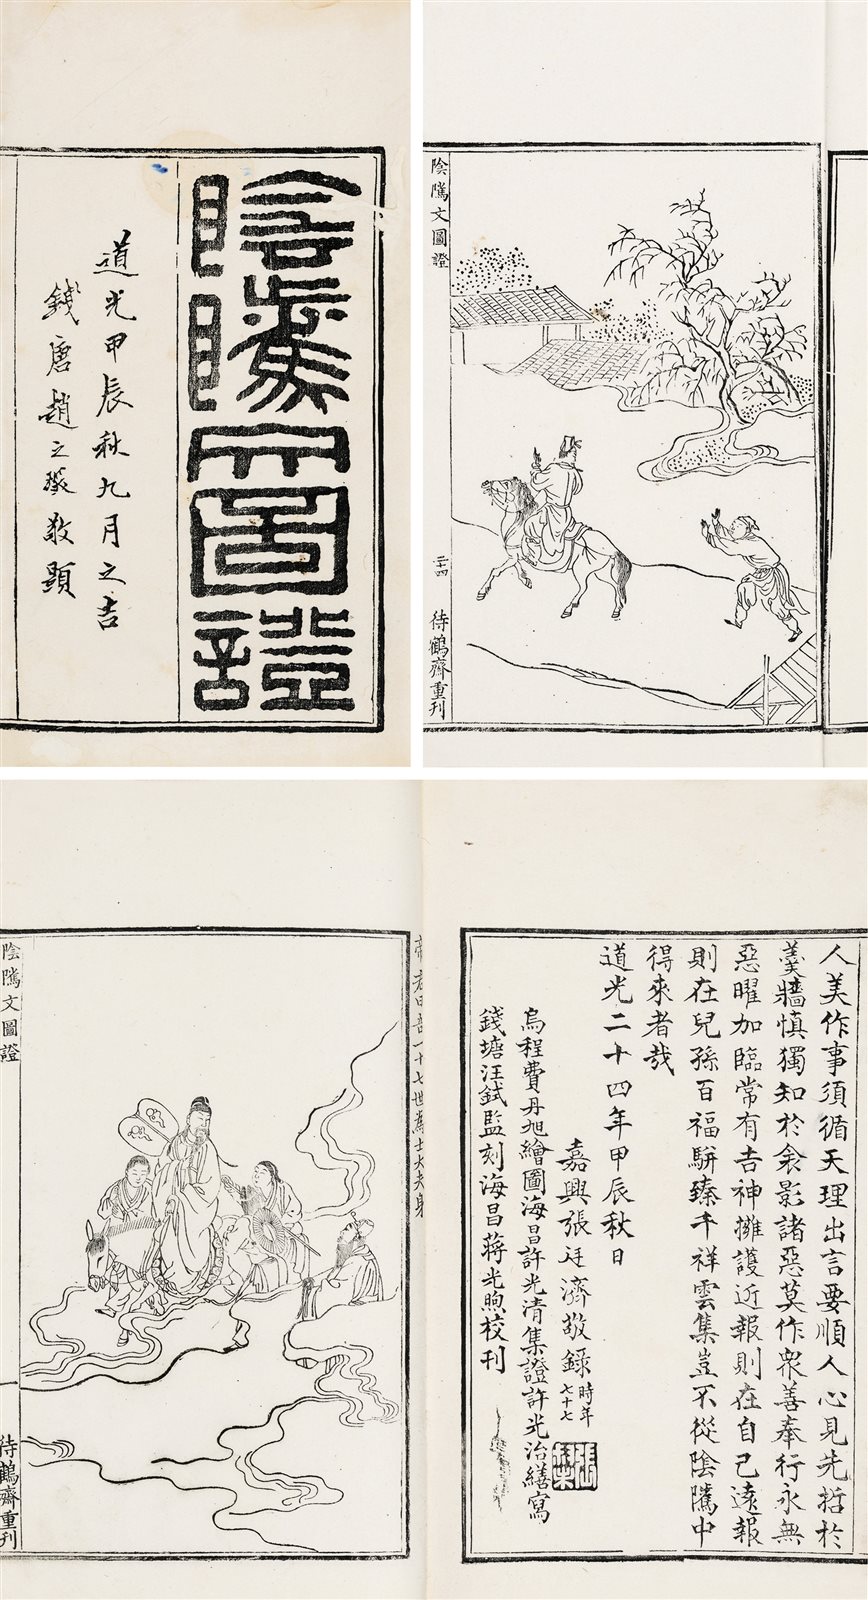 陰騭文圖證
道光甲辰秋九月之吉
錢唐趙之琛敬題
陰騭文圖證
二十四
待鶴齋重刊
帝君曰吾一十七世為士大夫身
陰騭文圖證
待鶴齋重刊
人美作事須循天理出言要順人心見先哲於
羹牆慎獨知於衾影諸惡莫作眾善奉行永無
惡曜加臨常有吉神擁護近報則在自己遠報
則在兒孫百福駢臻千祥雲集豈不從陰騭中
得來者哉
道光二十四年甲辰秋日
嘉興張廷濟敬錄時年七十七
烏程費丹旭繪圖海昌許光清集證許光治繕寫
錢塘汪鉽監刻海昌蔣光煦校刊